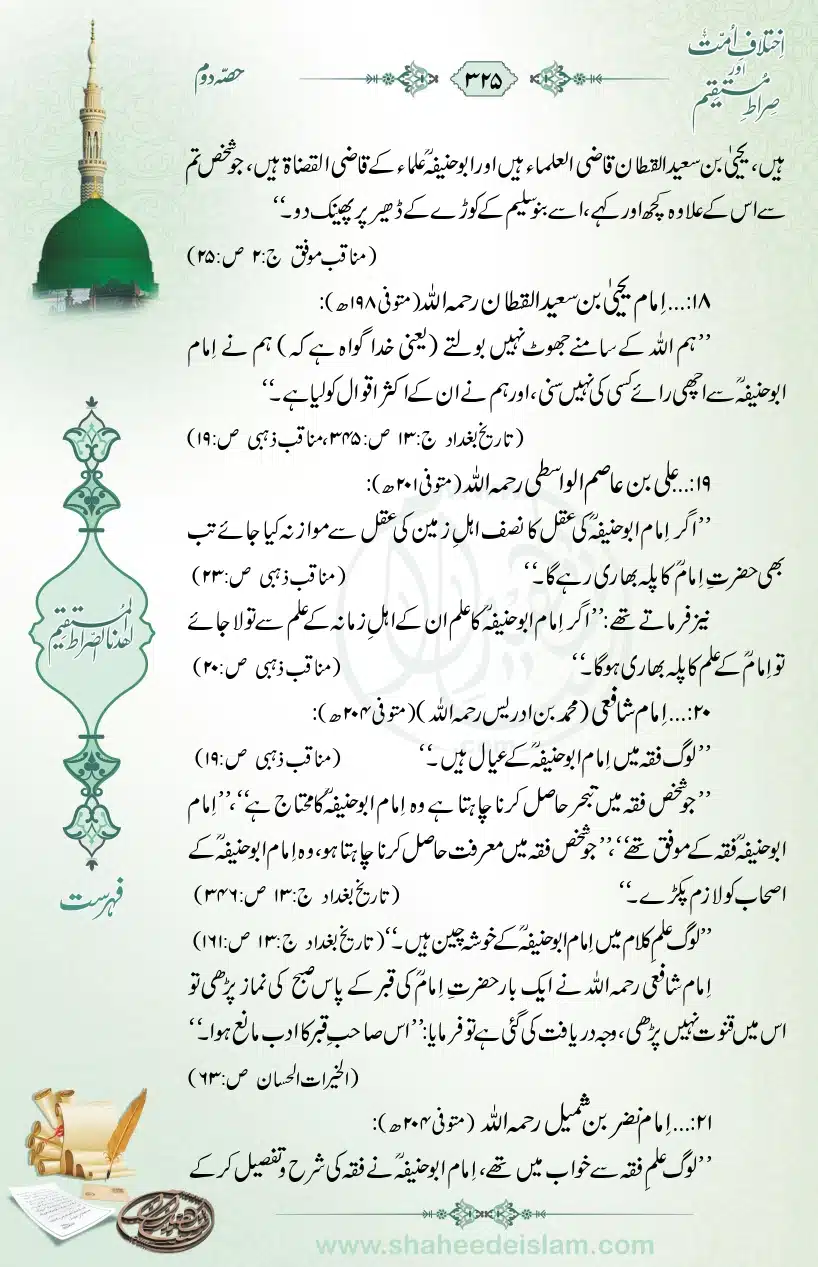 اِختلافِ اُمّت
اور
صِراطِ مُستقیم
۳۲۵
حصّہ دوم
ہیں، یحییٰ بن سعید القطان قاضی العلماء ہیں اور ابوحنیفہؒ علماء کے قاضی القضاۃ ہیں، جو شخص تم
سے اس کے علاوہ کچھ اور کہے، اسے بنو سلیم کے کوڑے کے ڈھیر پر پھینک دو۔‘‘
(مناقب موفق ج:۲ ص:۲۵)
۱۸:...اِمام یحییٰ بن سعید القطان رحمہ اللہ (متوفی ۱۹۸ھ):
’’ہم اللہ کے سامنے جھوٹ نہیں بولتے (یعنی خدا گواہ ہے کہ) ہم نے اِمام
ابوحنیفہؒ سے اچھی رائے کسی کی نہیں سنی، اور ہم نے ان کے اکثر اقوال کو لیا ہے۔‘‘
(تاریخ بغداد ج:۱۳ ص:۳۴۵، مناقب ذہبی ص:۱۹)
۱۹:...علی بن عاصم الواسطی رحمہ اللہ (متوفی ۲۰۱ھ):
’’اگر اِمام ابوحنیفہؒ کی عقل کا نصف اہلِ زمین کی عقل سے موازنہ کیا جائے تب
بھی حضرتِ اِمامؒ کا پلہ بھاری رہے گا۔‘‘ (مناقب ذہبی ص:۲۳)
نیز فرماتے تھے: ’’اگر اِمام ابوحنیفہؒ کا علم ان کے اہلِ زمانہ کے علم سے تولا جائے
تو اِمامؒ کے علم کا پلہ بھاری ہوگا۔‘‘ (مناقب ذہبی ص:۲۰)
۲۰:...اِمام شافعی (محمد بن ادریس رحمہ اللہ) (متوفی ۲۰۴ھ):
’’لوگ فقہ میں اِمام ابوحنیفہؒ کے عیال ہیں۔‘‘ (مناقب ذہبی ص:۱۹)
’’جو شخص فقہ میں تبحر حاصل کرنا چاہتا ہے وہ اِمام ابوحنیفہؒ کا محتاج ہے‘‘، ’’اِمام
ابوحنیفہؒ فقہ کے موفق تھے‘‘، ’’جو شخص فقہ میں معرفت حاصل کرنا چاہتا ہو، وہ اِمام ابوحنیفہؒ کے
اصحاب کو لازم پکڑے۔‘‘ (تاریخ بغداد ج:۱۳ ص:۳۴۶)
’’لوگ علمِ کلام میں اِمام ابوحنیفہؒ کے خوشہ چین ہیں۔‘‘ (تاریخ بغداد ج:۱۳ ص:۱۶۱)
اِمام شافعی رحمہ اللہ نے ایک بار حضرتِ اِمامؒ کی قبر کے پاس صبح کی نماز پڑھی تو
اس میں قنوت نہیں پڑھی، وجہ دریافت کی گئی ہے تو فرمایا: ’’اس صاحبِ قبر کا ادب مانع ہوا۔‘‘
(الخیرات الحسان ص:۶۳)
۲۱:...اِمام نضر بن شمیل رحمہ اللہ (متوفی ۲۰۴ھ):
’’لوگ علمِ فقہ سے خواب میں تھے، اِمام ابوحنیفہؒ نے فقہ کی شرح وتفصیل کرکے
اھدنا الصراط المستقیم
فہرست
www.shaheedeislam.com